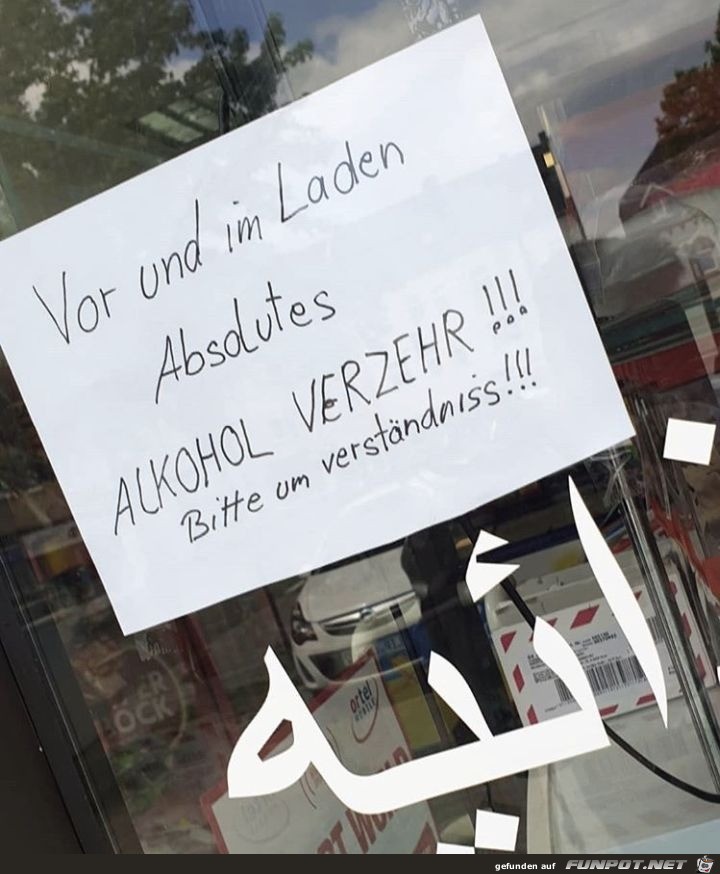 Vor und im Laden
Absolutes
ALKOHOL VERZEHR !!!
Bitte um verständniss!!!
ortel
MOBILE
ÖCK
gefunden auf FUNPOT.NET